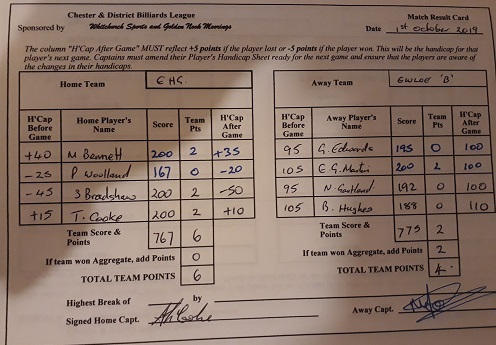 Chester & District Billiards League
Match Result Card
Sponsored by Whitchurch Sports and Golden Nook Moorings
Date 1st October 2019
The column "H'Cap After Game" MUST reflect +5 points if the player lost or -5 points if the player won. This will be the handicap for that
player's next game. Captains must amend their Player's Handicap Sheet ready for the next game and ensure that the players are aware of
the changes in their handicaps.
Home Team EHS.
H'Cap Before Game Home Player's Name Score Team Pts H'Cap After Game
+40 M Bennett 200 2 +35
-25 P Woolland 167 0 -20
-45 S Bradshaw 200 2 -50
+15 T. Cooke 200 2 +10
Team Score & Points 767 6
If team won Aggregate, add Points 0
TOTAL TEAM POINTS 6
Away Team EWLOE 'B'
H'Cap Before Game Away Player's Name Score Team Pts H'Cap After Game
95 G. Edwards 195 0 100
105 E G. Martin 200 2 100
95 N. 192 0 100
105 B. Hughes 188 0 110
Team Score & Points 775 2
If team won Aggregate, add Points 2
TOTAL TEAM POINTS 4
Highest Break of by
Signed Home Capt.
Away Capt.